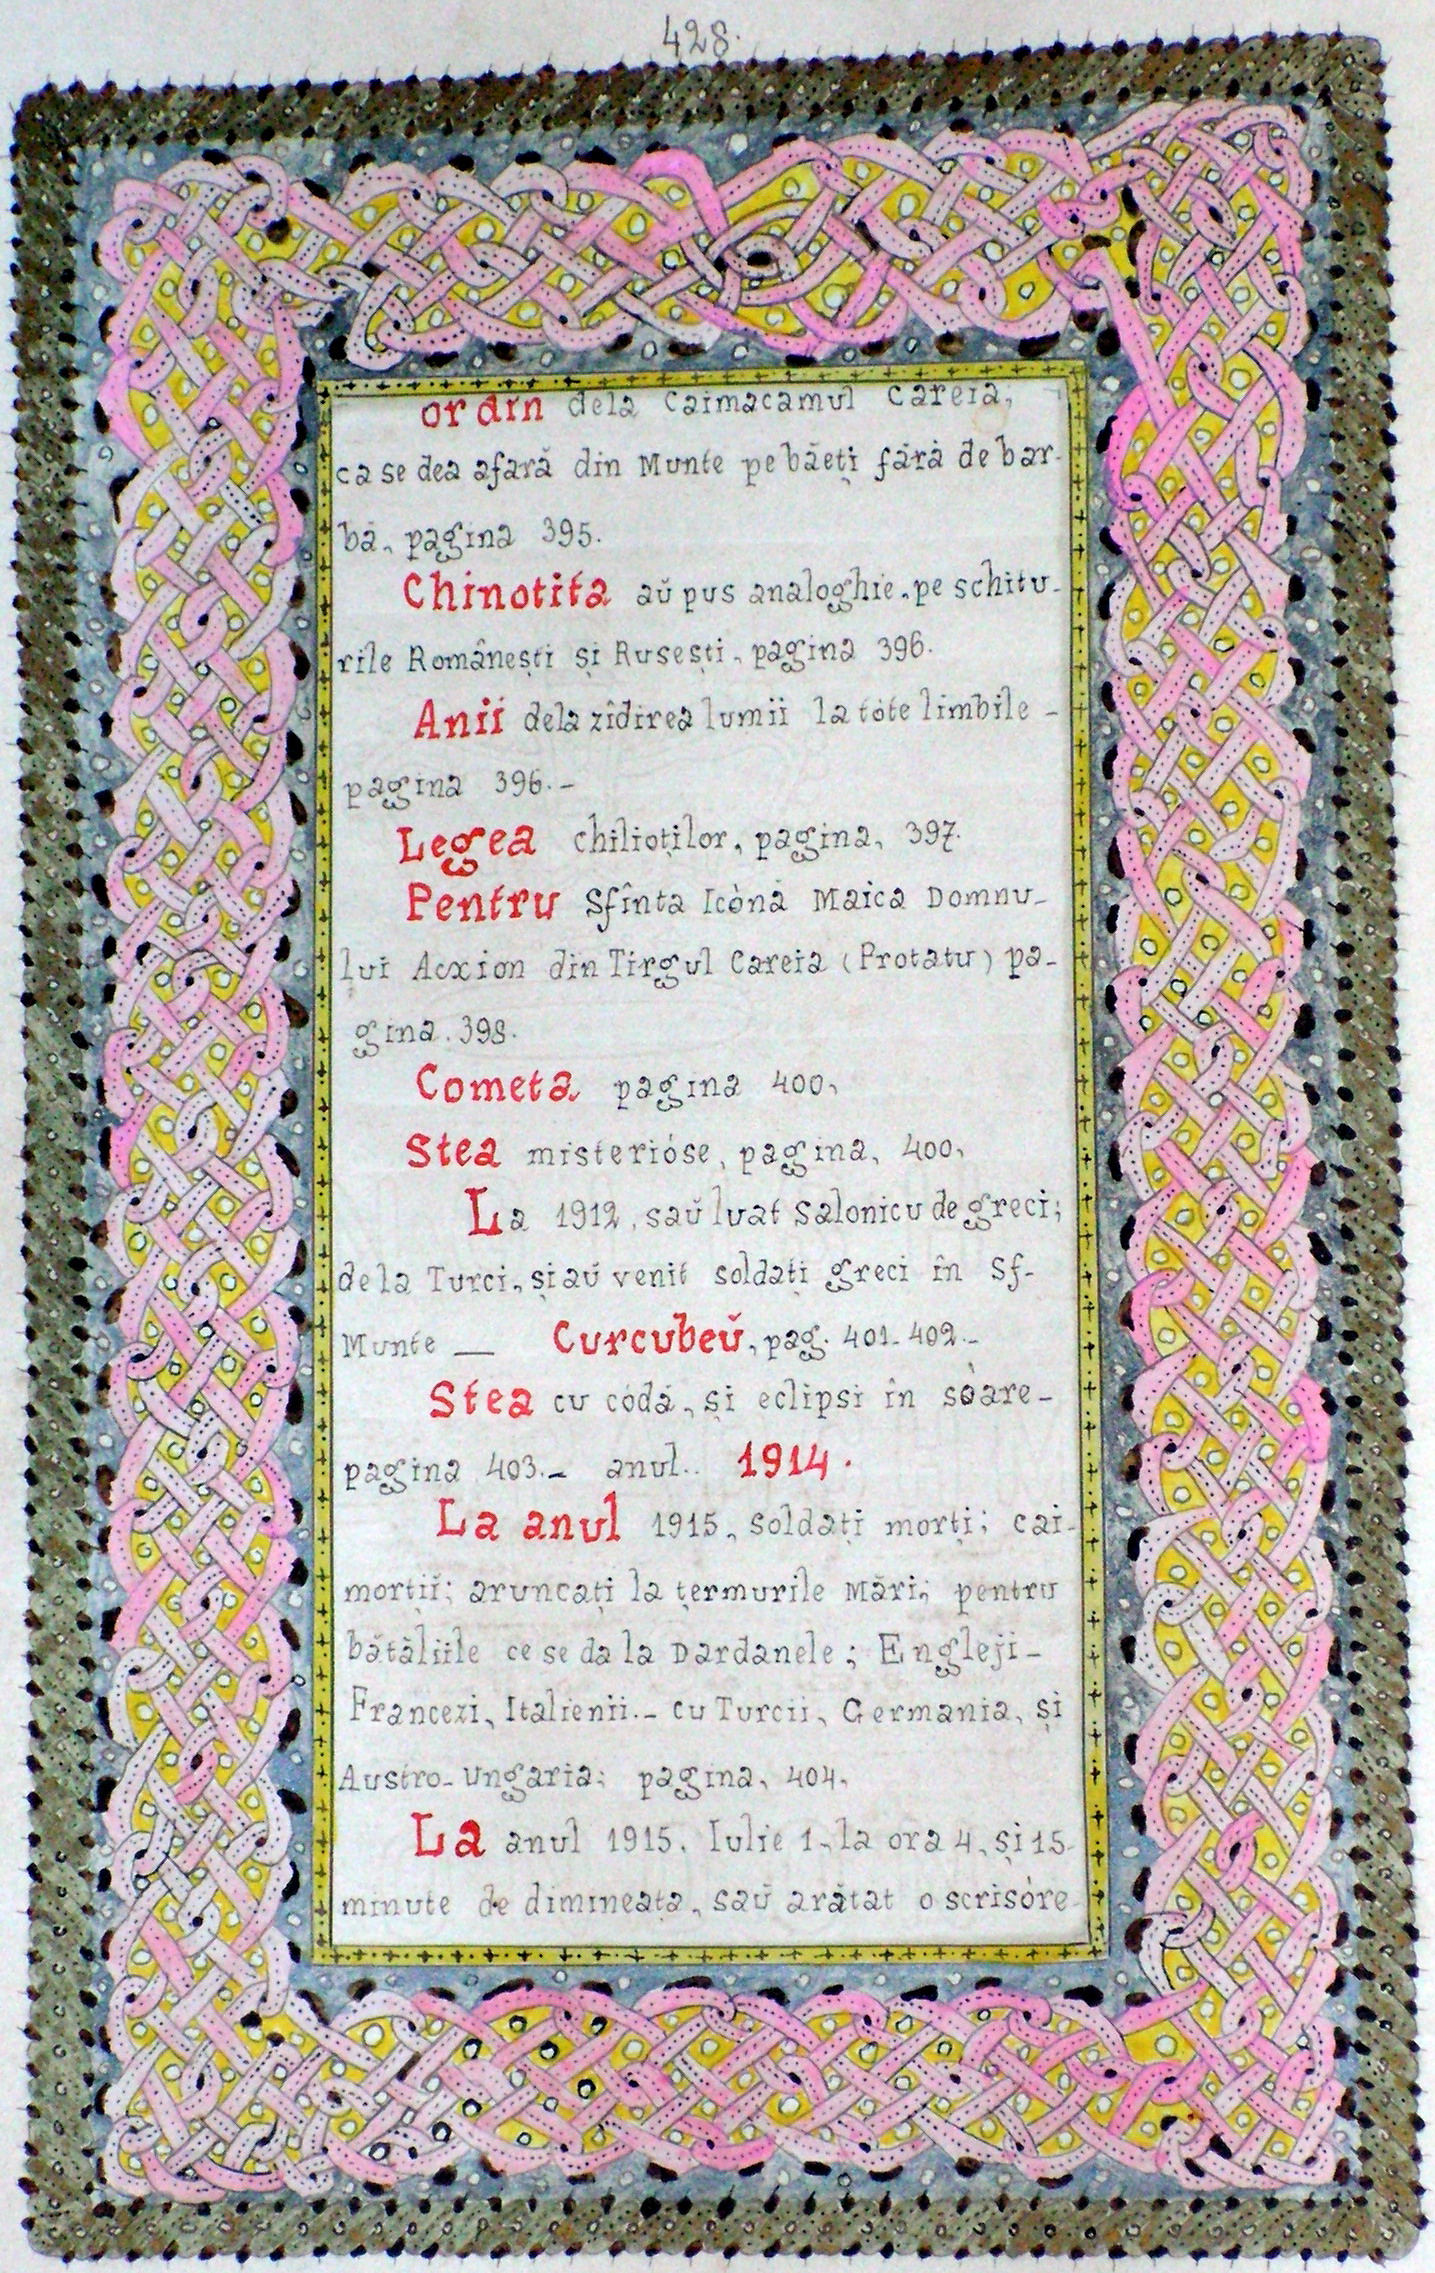 428.
ordin dela Caimacamul Careia,
ca se dea afară din Munte pe băeți fără de bar-
bă, pagina 395.
Chinotita aŭ pus analoghie, pe schitu-
rile Românești și Rusești, pagina 396.
Anii dela zîdirea lumii la tóte limbile -
pagina 396.-
Legea chilioților, pagina, 397.
Pentru Sfînta Icónă Maica Domnu-
lui Acxion din Tirgul Careia (Protatu) pa-
gina. 398.
Cometa pagina 400,
Stea misterióse, pagina, 400,
La 1912, saŭ luat Salonicu de greci;
de la Turci, și aŭ venit soldați greci în Sf-
Munte — Curcubeŭ, pag. 401-402.-
Stea cu códă, și eclipsi în sóare-
pagina 403.- anul.. 1914.
La anul 1915, soldați morți; cai-
morțiĭ; aruncați la țermurile Mării; pentru
bătăliile ce se da la Dardanele; Engleji-
Francezi, Italienii.- cu Turcii, Germania, și
Austro-Ungaria; pagina, 404,
La anul 1915, Iulie 1, la ora 4, și 15
minute de dimineața, saŭ arătat o scrisóre